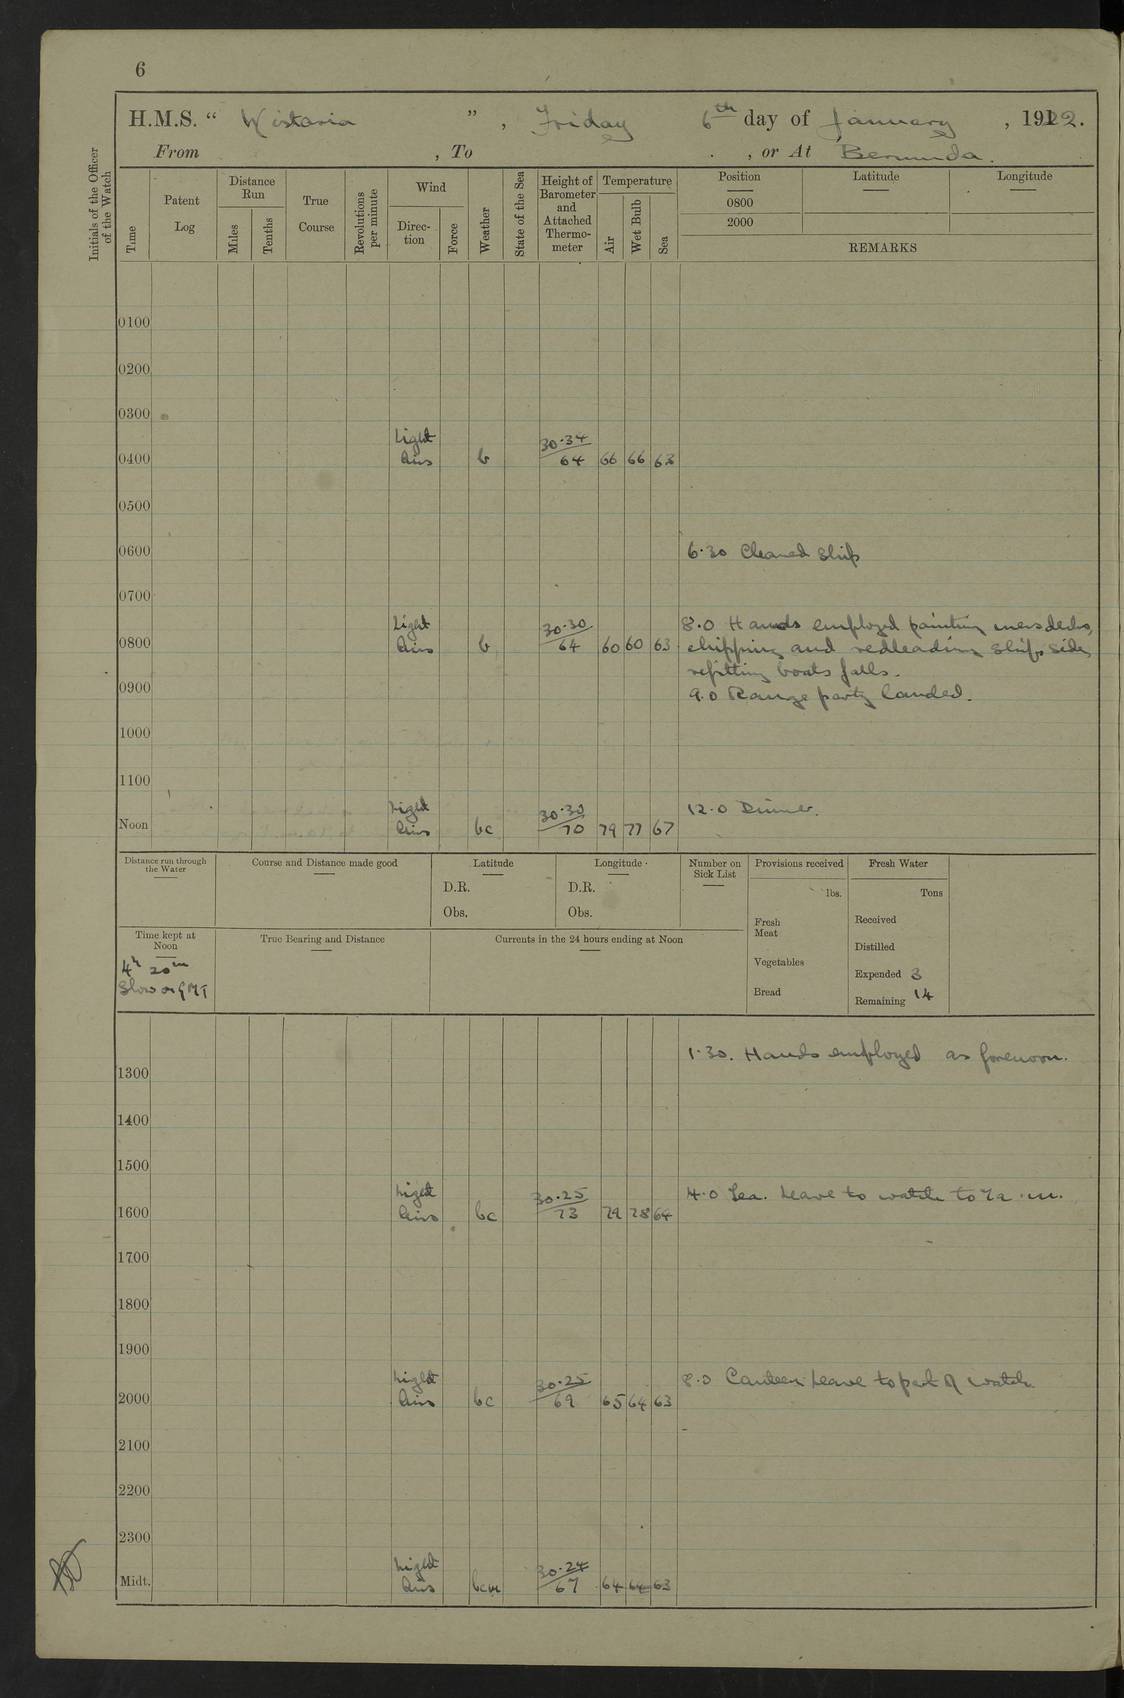 6
H.M.S. “ Wistaria ” , Friday 6th day of January , 1922.
From , To , or At Bermuda.
Initials of the Officer of the Watch
Time
Patent Log
Distance Run
Miles
Tenths
True Course
Revolutions per minute
Wind
Direc- tion
Force
Weather
State of the Sea
Height of Barometer and Attached Thermo- meter
Temperature
Air
Wet Bulb
Sea
Position Latitude Longitude
0800
2000
REMARKS
0100
0200
0300
0400 Light Airs b 30.34 64 66 66 63
0500
0600 6.30 Cleaned Ship
0700
0800 Light Airs b 30.30 64 60 60 63
8.0 Hands employed painting mess decks,
chipping and redleading ships side,
refitting boats falls.
0900 9.0 Range party landed.
1000
1100
Noon Light Airs bc 30.30 70 79 77 67 12.0 Dinner.
Distance run through the Water
Course and Distance made good
Latitude
D.R.
Obs.
Longitude
D.R.
Obs.
Number on Sick List
Provisions received
lbs.
Fresh Meat
Vegetables
Bread
Fresh Water
Tons
Received
Distilled
Expended 3
Remaining 14
Time kept at Noon
4h 20m
Slow on GMT
True Bearing and Distance
Currents in the 24 hours ending at Noon
1.30. Hands employed as forenoon.
1300
1400
1500
1600 Light Airs bc 30.25 73 79 78 64 4.0 Tea. Leave to watch to 7 a.m.
1700
1800
1900
2000 Light Airs bc 30.25 69 65 64 63 8.0 Canteen leave to part of watch
2100
2200
2300
Midt. Light Airs bcm 30.24 67 64 64 63